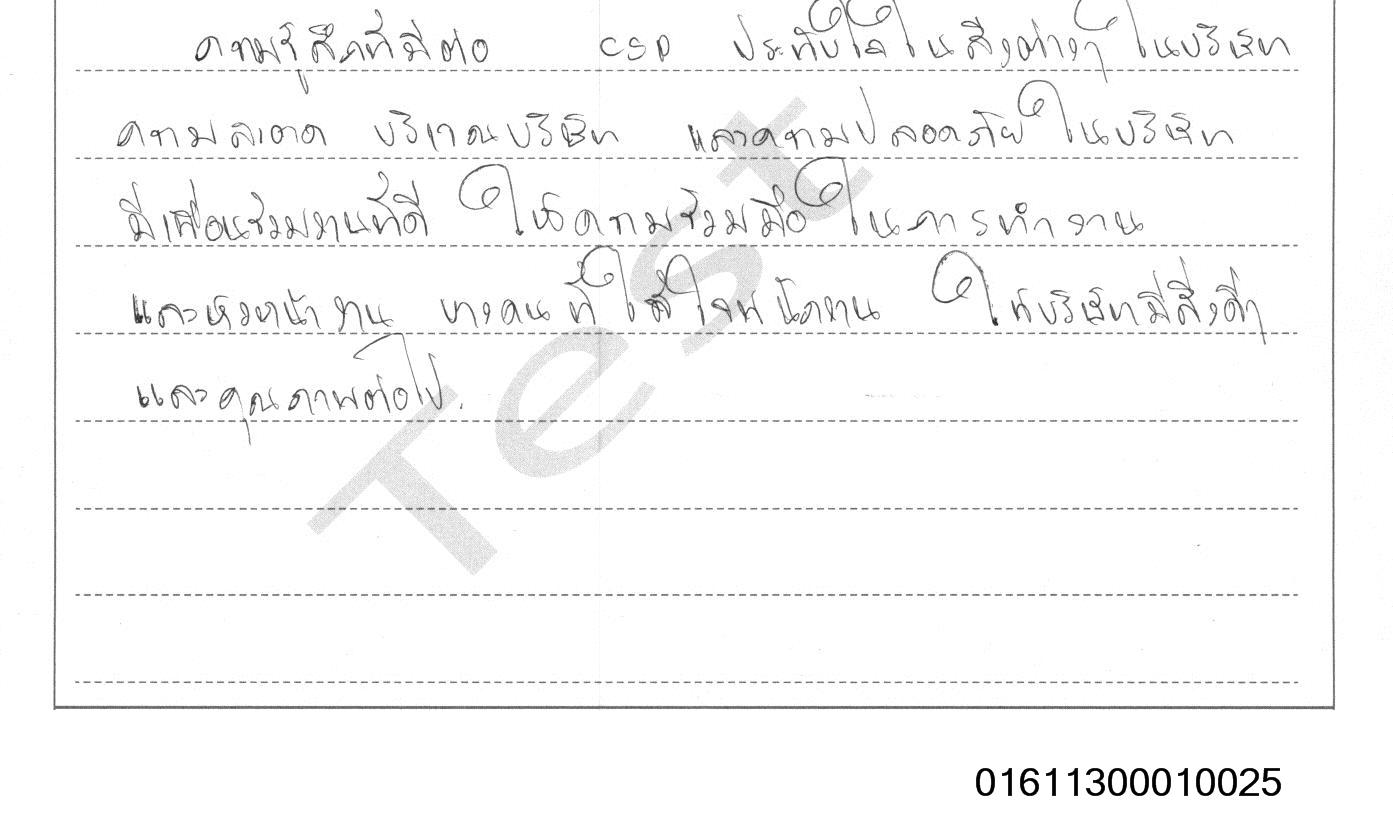 ความรู้สึกที่มีต่อ CSP ประทับใจในสิ่งต่างๆ ในบริษัท
ความสะอาด บริเวณบริษัท และความปลอดภัยในบริษัท
มีเพื่อนร่วมงานที่ดี ให้ความร่วมมือในการทำงาน
และหัวหน้างาน บางคนที่ใส่ใจพนักงาน ให้บริษัทมีสิ่งดีๆ
และคุณภาพต่อไป.
Test
01611300010025